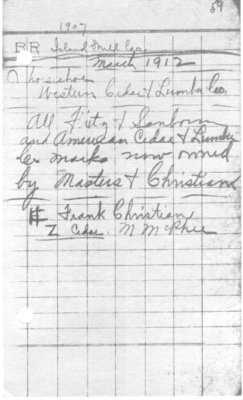 59
1907
R R Island Mill Co.
March 1912
horseshoe
Western Cedar & Lumber Co.
All Fritz & Sanborn
and American Cedar & Lumber
Co marks now owned
by Masters & Christian
Frank Christian
Z Cedar. M McPhee